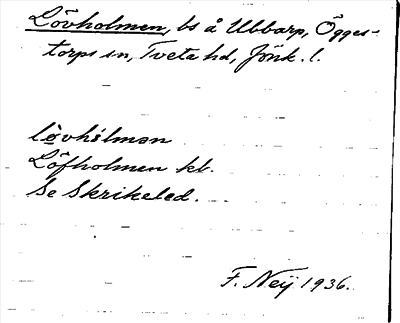 Lövholmen, bs å Ubbarp, Ögges-
torps sn, Tveta hd, Jönk. l.
lövhålmən
Löfholmen kb.
Se Skrikeled.
F. Neij 1936.